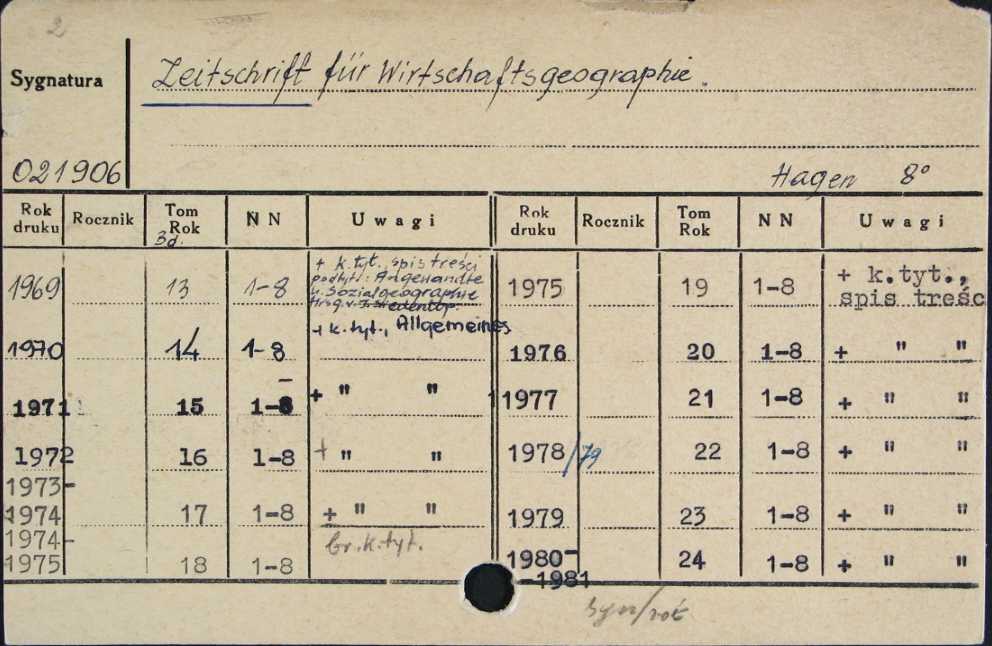 2
Sygnatura
Zeitschrift für Wirtschaftsgeographie.
021906
Hagen 8°
Rok druku Rocznik Tom Rok NN Uwagi Rok druku Rocznik Tom Rok NN Uwagi
3d.
1969 13 1-8 + k.tyt. spis treści
podtyt.: Angewandte
u. Sozialgeographie
Hrsg. v.
1975 19 1-8 + k.tyt.,
spis treśc
1970 14 1-8 + k.tyt., Allgemeines
1976 20 1-8 + " "
1971 15 1-8 + " "
1977 21 1-8 + " "
1972 16 1-8 + " "
1978/79 22 1-8 + " "
1973-
1974 17 1-8 + " "
1979 23 1-8 + " "
1974-
1975 18 1-8 br.k.tyt.
1980-
-1981 24 1-8 + " "